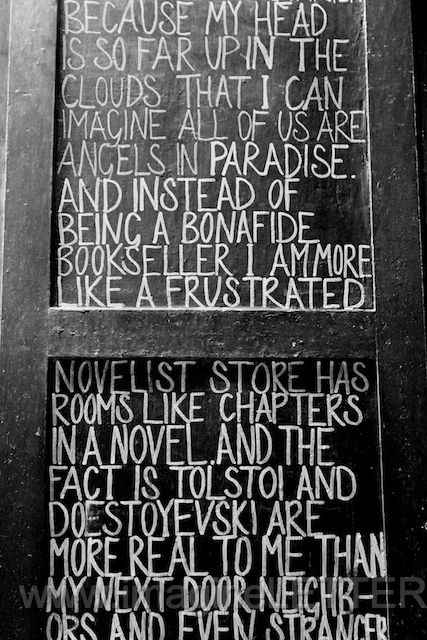 BECAUSE MY HEAD
IS SO FAR UP IN THE
CLOUDS THAT I CAN
IMAGINE ALL OF US ARE
ANGELS IN PARADISE.
AND INSTEAD OF
BEING A BONAFIDE
BOOKSELLER I AM MORE
LIKE A FRUSTRATED
NOVELIST STORE HAS
ROOMS LIKE CHAPTERS
IN A NOVEL. AND THE
FACT IS TOLSTOI AND
DOESTOYEVSKI ARE
MORE REAL TO ME THAN
MY NEXT DOOR NEIGHB-
ORS AND EVEN STRANGER